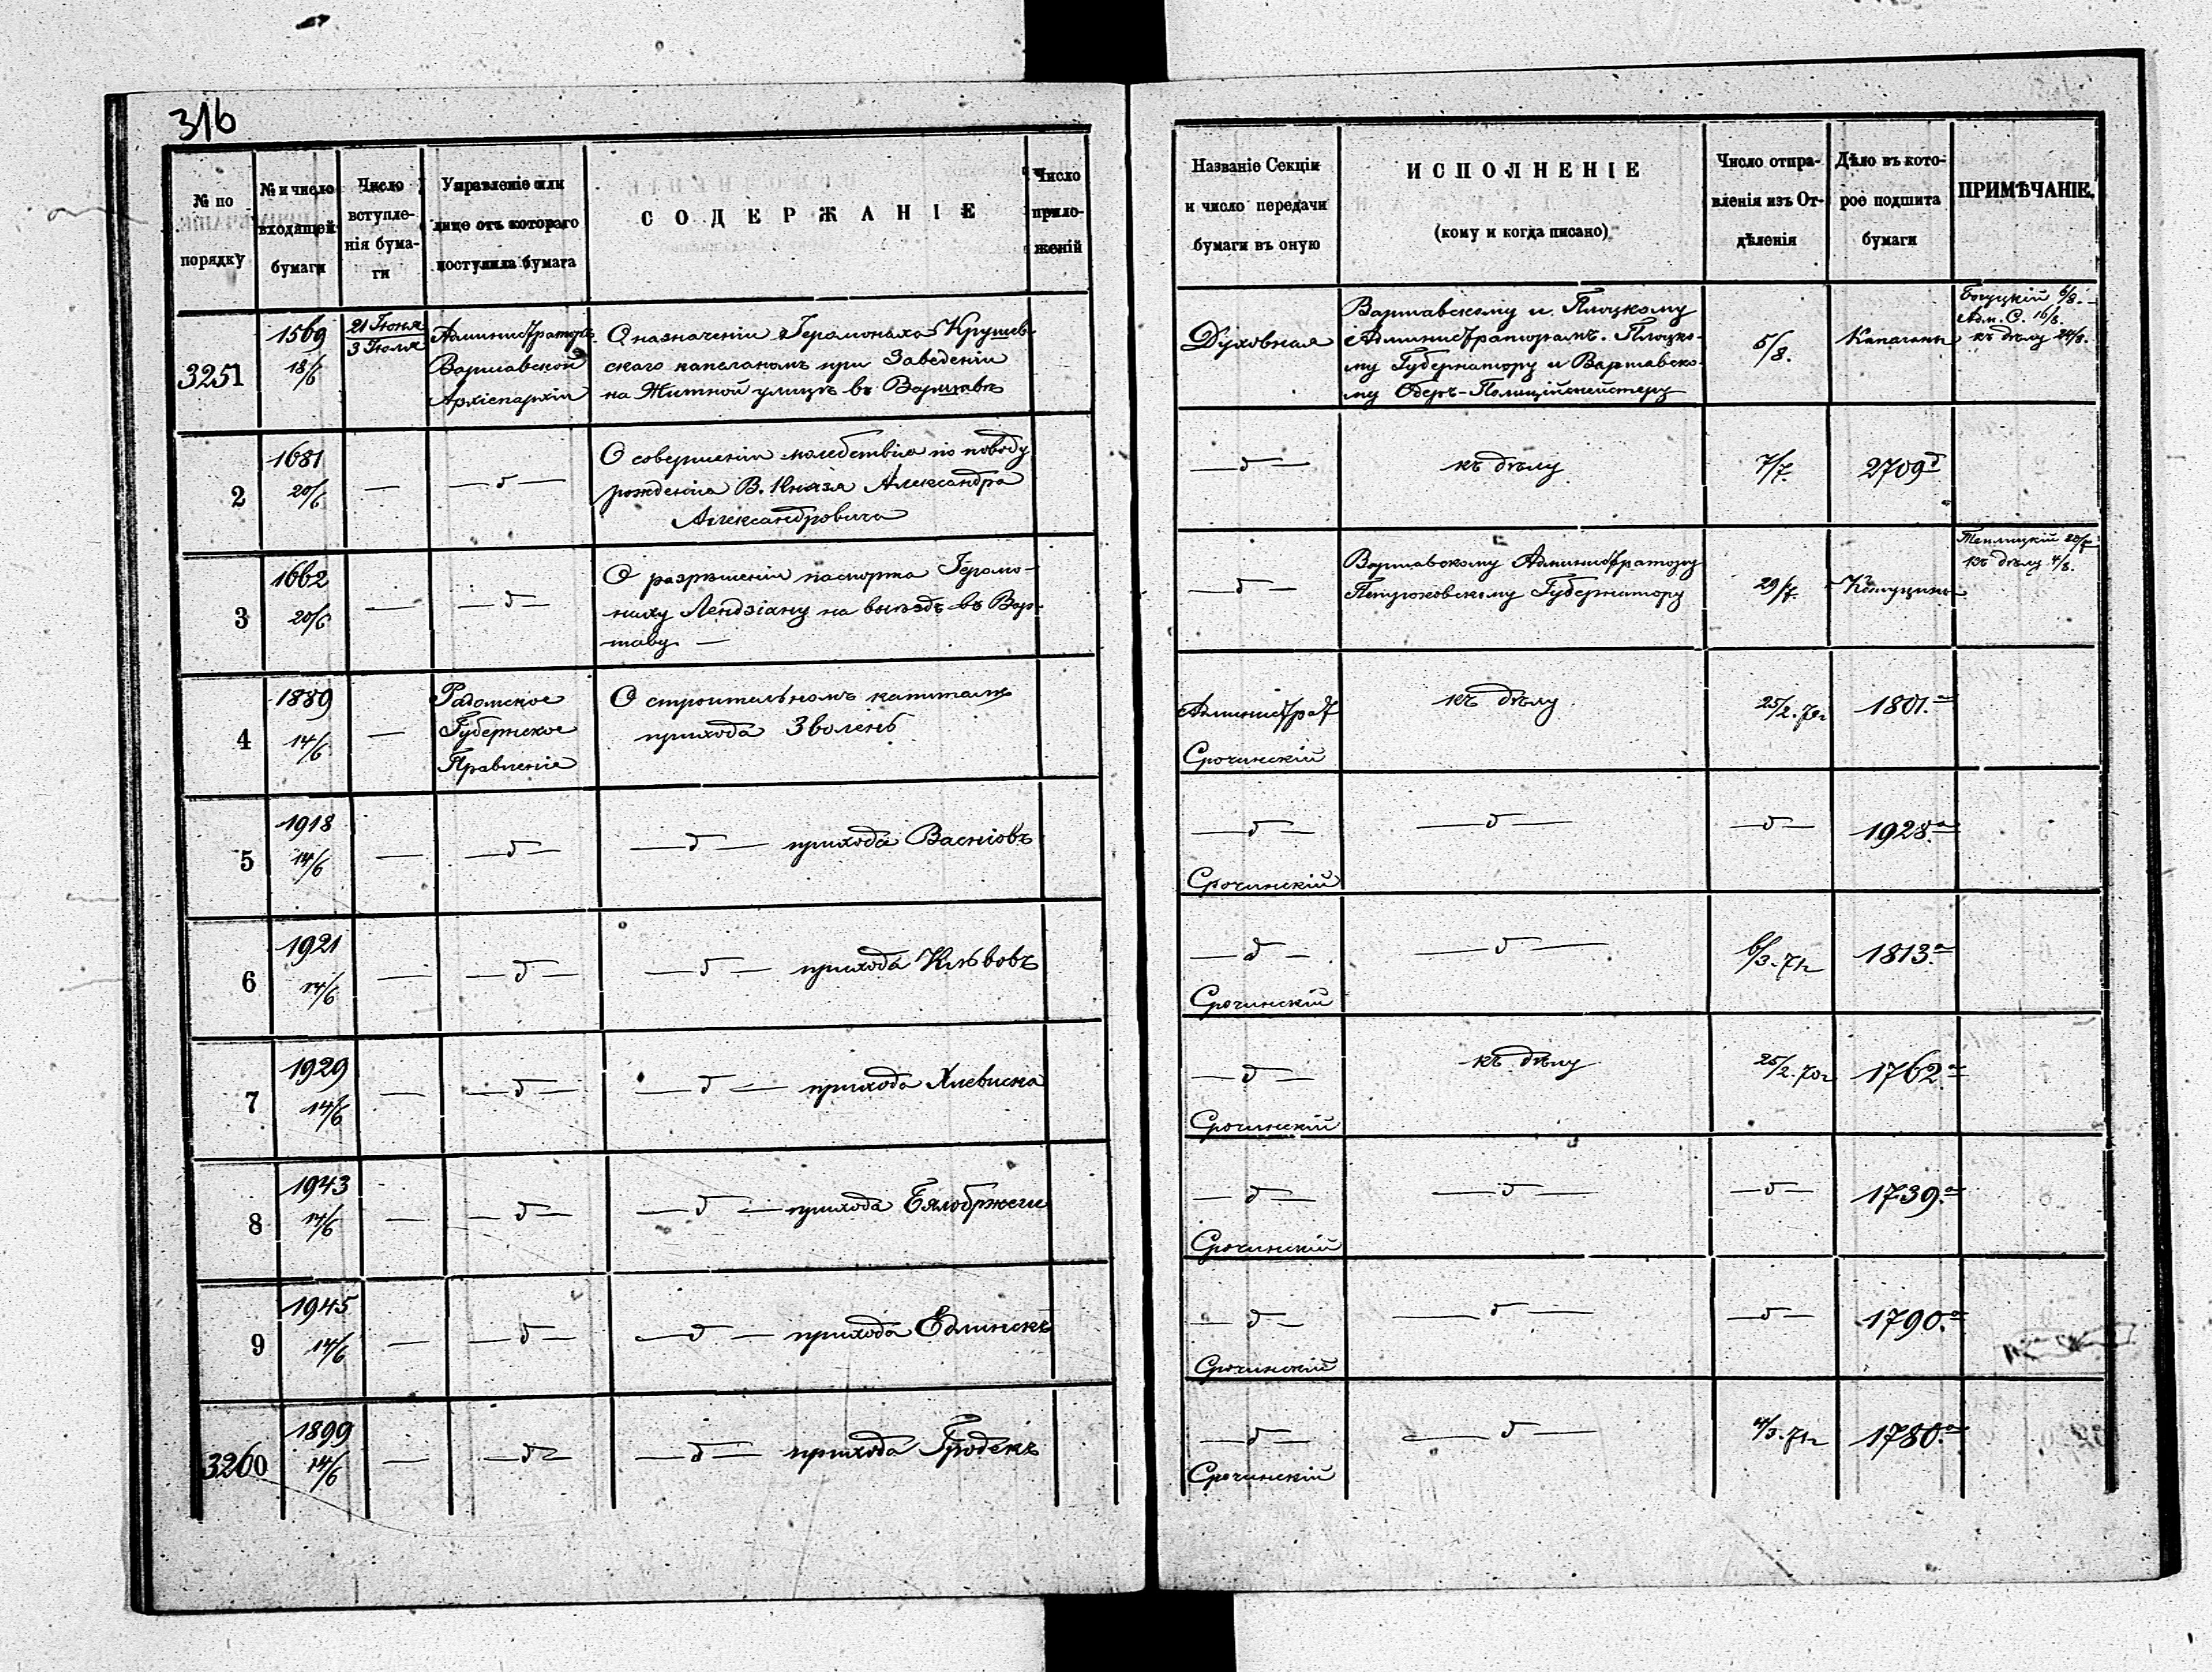 316
№ по порядку
№ и число входящей бумаги
Число вступле-нія бума-ги
Управленіе или лице отъ котораго поступила бумага
СОДЕРЖАНІЕ
Число прило-женій
Названіе Секціи и число передачи бумаги въ оную
ИСПОЛНЕНІЕ
(кому и когда писано)
Число отпра-вленія изъ От-дѣленія
Дѣло въ кото-рое подшита бумаги
ПРИМѢЧАНІЕ.
3251
1569
18/6
21 Іюня
3 Іюля
Администраторъ
Варшавской
Архіепархіи
О назначеніи Іеромонаха Крушев-
скаго капеланомъ при Заведеніи
на Житной улицѣ въ Варшавѣ
Духовная
Варшавскому и Плоцкому
Администраторамъ. Плоцко-
му Губернатору и Варшавско-
му Оберъ-Полиціймейстеру
5/8.
Капеланы
Богуцкій 6/8.
Адм. С. 16/8.
къ дѣлу 24/8.
2
1681
20/6
—
— д —
О совершеніи молебствія по поводу
рожденія В. Князя Александра
Александровича
— д —
къ дѣлу
7/7.
2709 д
3
1662
20/6
—
— д —
О разрѣшеніи паспорта Іеромо-
наху Лендзіану на выѣздъ въ Вар-
шаву —
— д —
Варшавскому Администратору
Петроковскому Губернатору
29/7.
къ дѣлу 4/8.
4
1889
14/6
—
Радомское
Губернское
Правленіе
О строительномъ капиталѣ
прихода Зволень
Администрат
Срочинскій
къ дѣлу
25/2. 70г
1801.а
5
1918
14/6
—
— д —
— д — прихода Васніовъ
— д —
Срочинскій
— д —
— д —
1928.а
6
1921
14/6
—
— д —
— д — прихода Кльвовъ
— д —
Срочинскій
— д —
6/3. 71г
1813.а
7
1929
14/6
—
— д —
— д — прихода Хлевиска
— д —
Срочинскій
къ дѣлу
25/2. 70г
1762.а
8
1943
14/6
—
— д —
— д — прихода Бялобржеги
— д —
Срочинскій
— д —
— д —
1739.а
9
1945
14/6
—
— д —
— д — прихода Едлинскъ
— д —
Срочинскій
— д —
— д —
1790.а
3260
1899
14/6
—
— д —
— д — прихода Гродекъ
— д —
Срочинскій
— д —
4/3. 71г
1780.а